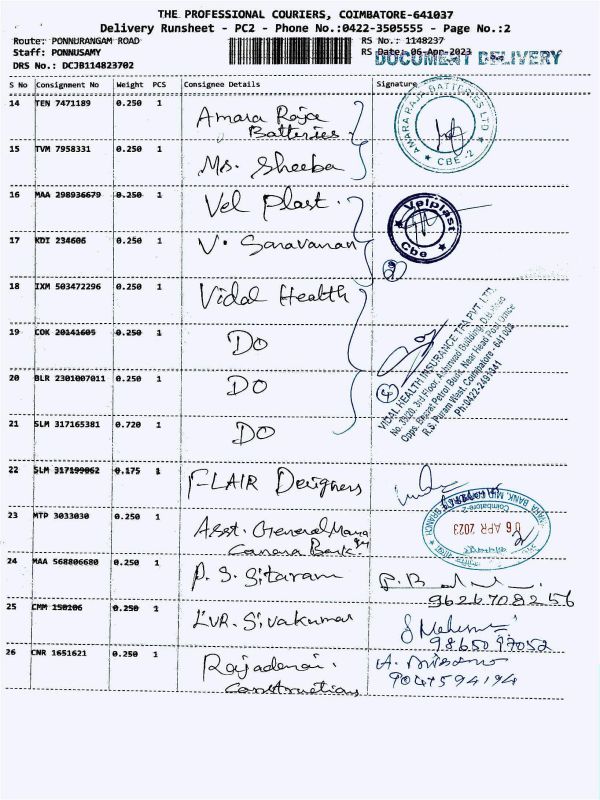 THE PROFESSIONAL COURIERS, COIMBATORE-641037
Delivery Runsheet - PC2 - Phone No.:0422-3505555 - Page No.:2
Route: PONNURANGAM ROAD RS No.: 1148237
Staff: PONNUSAMY RS Date: 06-Apr-2023
DOCUMENT DELIVERY
DRS No.: DCJB114823702
S No Consignment No Weight PCS Consignee Details Signature
14 TEN 7471189 0.250 1 Amara Raja
Batteries.
AMARA RAJA BATTERIES LTD
CBE-2
15 TVM 7958331 0.250 1 Ms. Sheeba
16 MAA 298936679 0.250 1 Vel Plast.
Velplast
Cbe
17 KDI 234606 0.250 1 V. Saravanan
2
18 IXM 503472296 0.250 1 Vidal Health
19 COK 20141605 0.250 1 DO
20 BLR 2301007011 0.250 1 DO
4
VIDAL HEALTH INSURANCE TPA PVT. LTD.
No. 3rd Floor, Building,
Opps. Bharat Petrol Bunk, Near Head Post Office
R.S. Puram West, Coimbatore - 641 002
Ph:0422-2491841
21 SLM 317165381 0.720 1 DO
22 SLM 317199062 0.175 1 FLAIR Designers
23 MTP 3033030 0.250 1 Asst. General Mana
ger
Canara Bank
06 APR 2023
Coimbatore-2
24 MAA 568806680 0.250 1 P. S. Sitaram
9626708256
25 CMM 150106 0.250 1 LVR. Sivakumar
9865097052
26 CNR 1651621 0.250 1 Rajadurai.
Constructions
9047594194